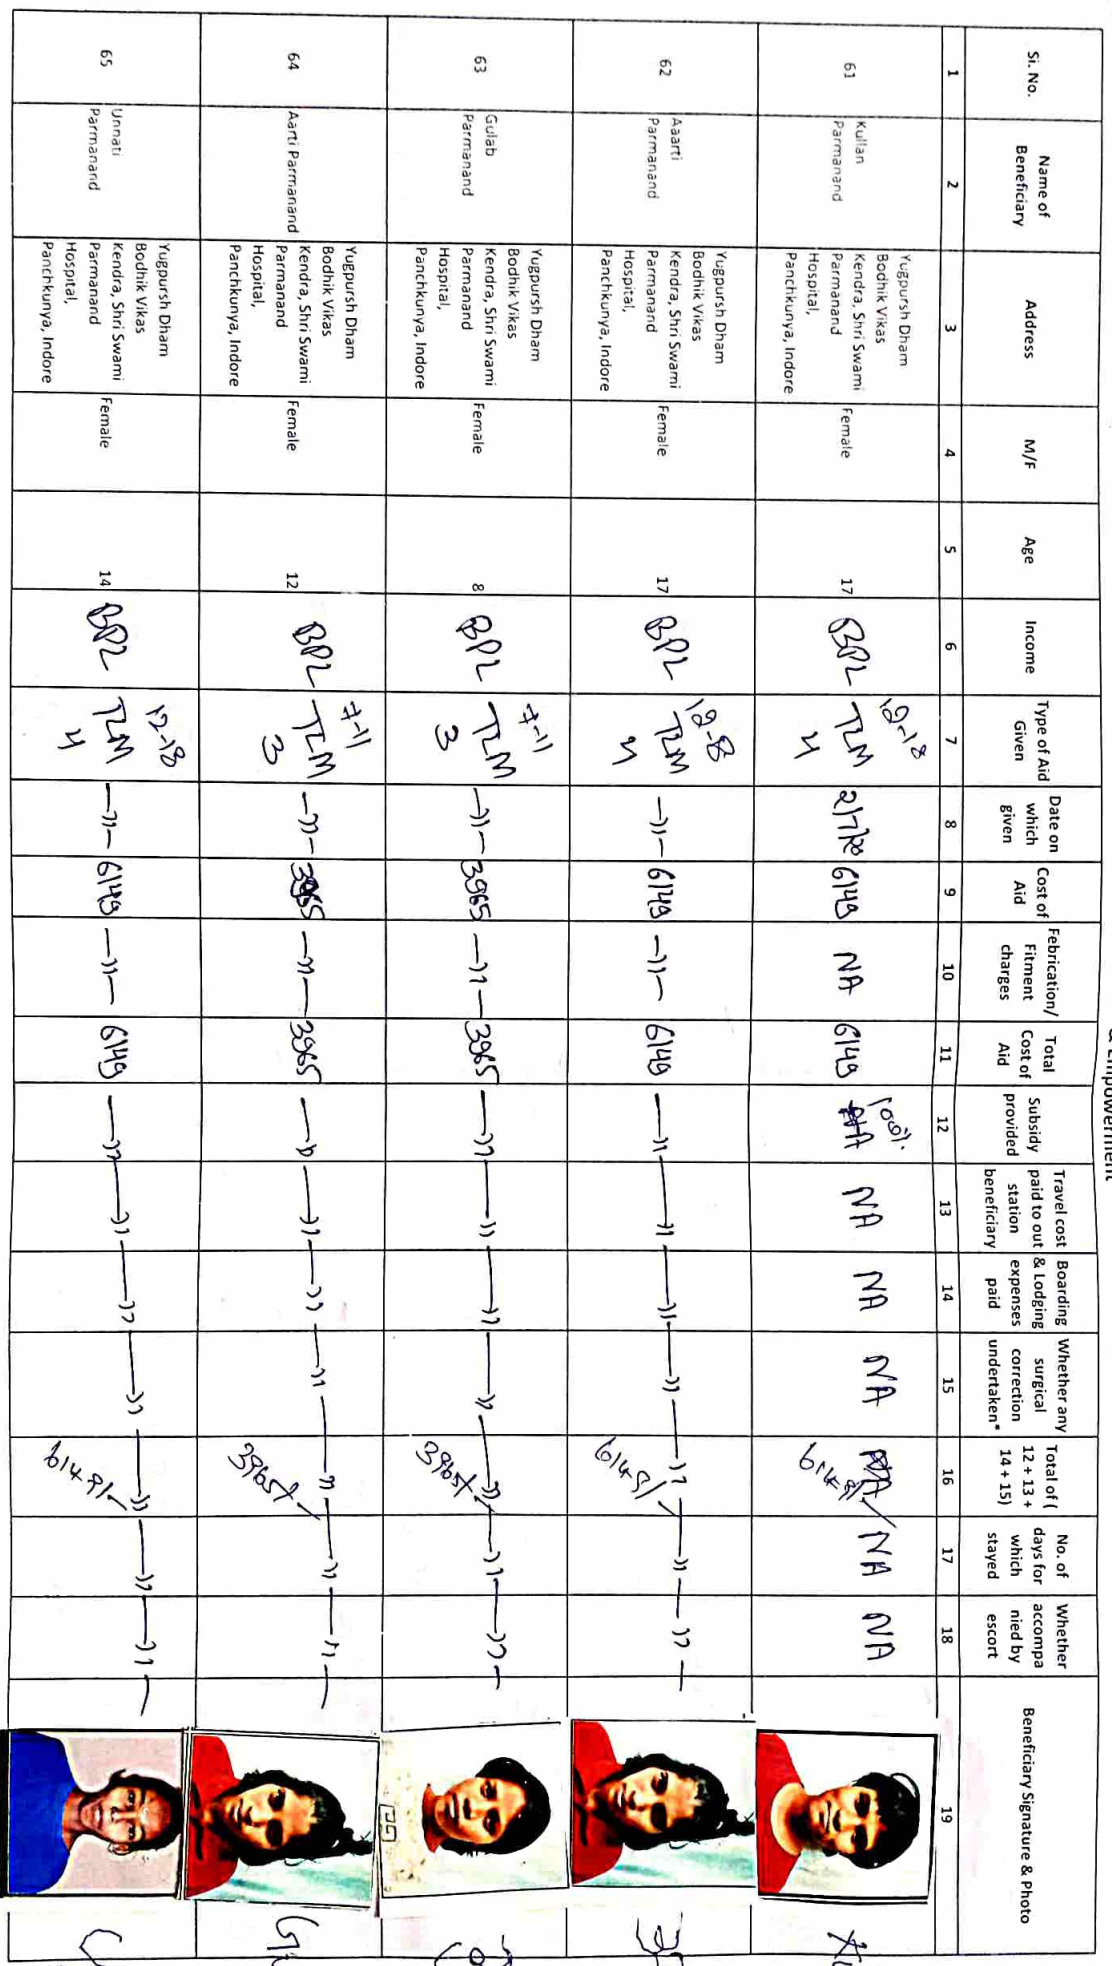 & Empowerment
Si. No.
Name of
Beneficiary
Address
M/F
Age
Income
Type of Aid
Given
Date on
which
given
Cost of
Aid
Febrication/
Fitment
charges
Total
Cost of
Aid
Subsidy
provided
Travel cost
paid to out
station
beneficiary
Boarding
& Lodging
expenses
paid
Whether any
surgical
correction
undertaken*
Total of (
12 + 13 +
14 + 15)
No. of
days for
which
stayed
Whether
accompa
nied by
escort
Beneficiary Signature & Photo
1 2 3 4 5 6 7 8 9 10 11 12 13 14 15 16 17 18 19
61
Kullan
Parmanand
Yugpursh Dham
Bodhik Vikas
Kendra, Shri Swami
Parmanand
Hospital,
Panchkunya, Indore
Female
17
BPL
12-18
TLM
4
2/7/20
6149
NA
6149
100%
NA
NA
NA
6149/
NA
NA
62
Aaarti
Parmanand
Yugpursh Dham
Bodhik Vikas
Kendra, Shri Swami
Parmanand
Hospital,
Panchkunya, Indore
Female
17
BPL
12-18
TLM
4
—〃—
6149
—〃—
6149
—〃—〃—〃—〃—〃—〃—〃—
6149/
63
Gulab
Parmanand
Yugpursh Dham
Bodhik Vikas
Kendra, Shri Swami
Parmanand
Hospital,
Panchkunya, Indore
Female
8
BPL
7-11
TLM
3
—〃—
3965
—〃—
3965
—〃—〃—〃—〃—〃—〃—〃—
3965/
64
Aarti Parmanand
Yugpursh Dham
Bodhik Vikas
Kendra, Shri Swami
Parmanand
Hospital,
Panchkunya, Indore
Female
12
BPL
7-11
TLM
3
—〃—
3965
—〃—
3965
—〃—〃—〃—〃—〃—〃—〃—
3965/
65
Unnati
Parmanand
Yugpursh Dham
Bodhik Vikas
Kendra, Shri Swami
Parmanand
Hospital,
Panchkunya, Indore
Female
14
BPL
12-18
TLM
4
—〃—
6149
—〃—
6149
—〃—〃—〃—〃—〃—〃—〃—
6149/